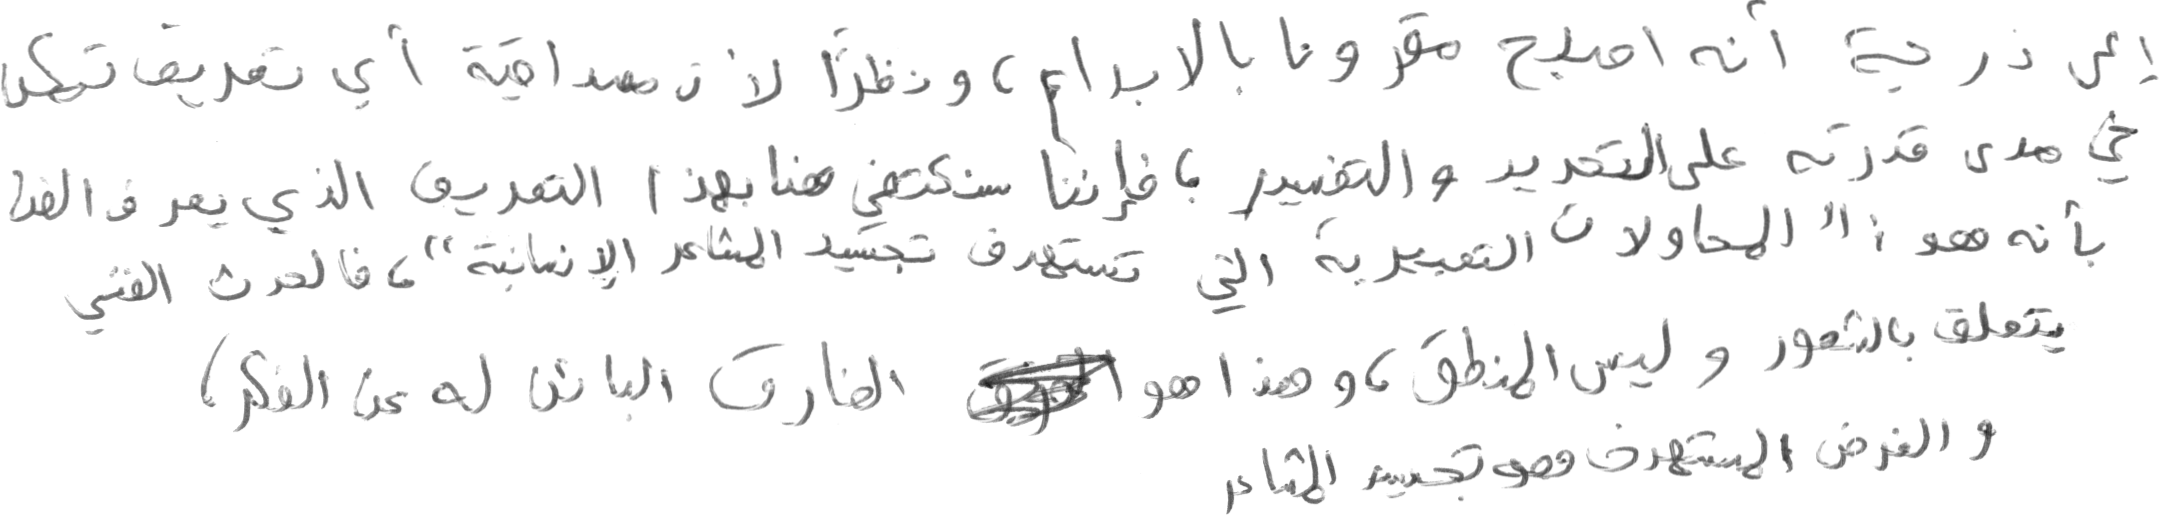 إلى درجة أنه اصبح مقرونا بالابداع، ونظرًا لأن مصداقية أي تعريف تكمن
في مدى قدرته على التحديد والتفسير، فإننا سنكتفي هنا بهذا التعريف الذي يعرف الفن
بأنه هو: "المحاولات التعبيرية التي تستهدف تجسيد المشاعر الإنسانية"، فالحدث الفني
يتعلق بالشعور وليس المنطق، وهذا هو الفارق البائن له عن الفكر،
والغرض المستهدف وهو تجسيد المشاعر